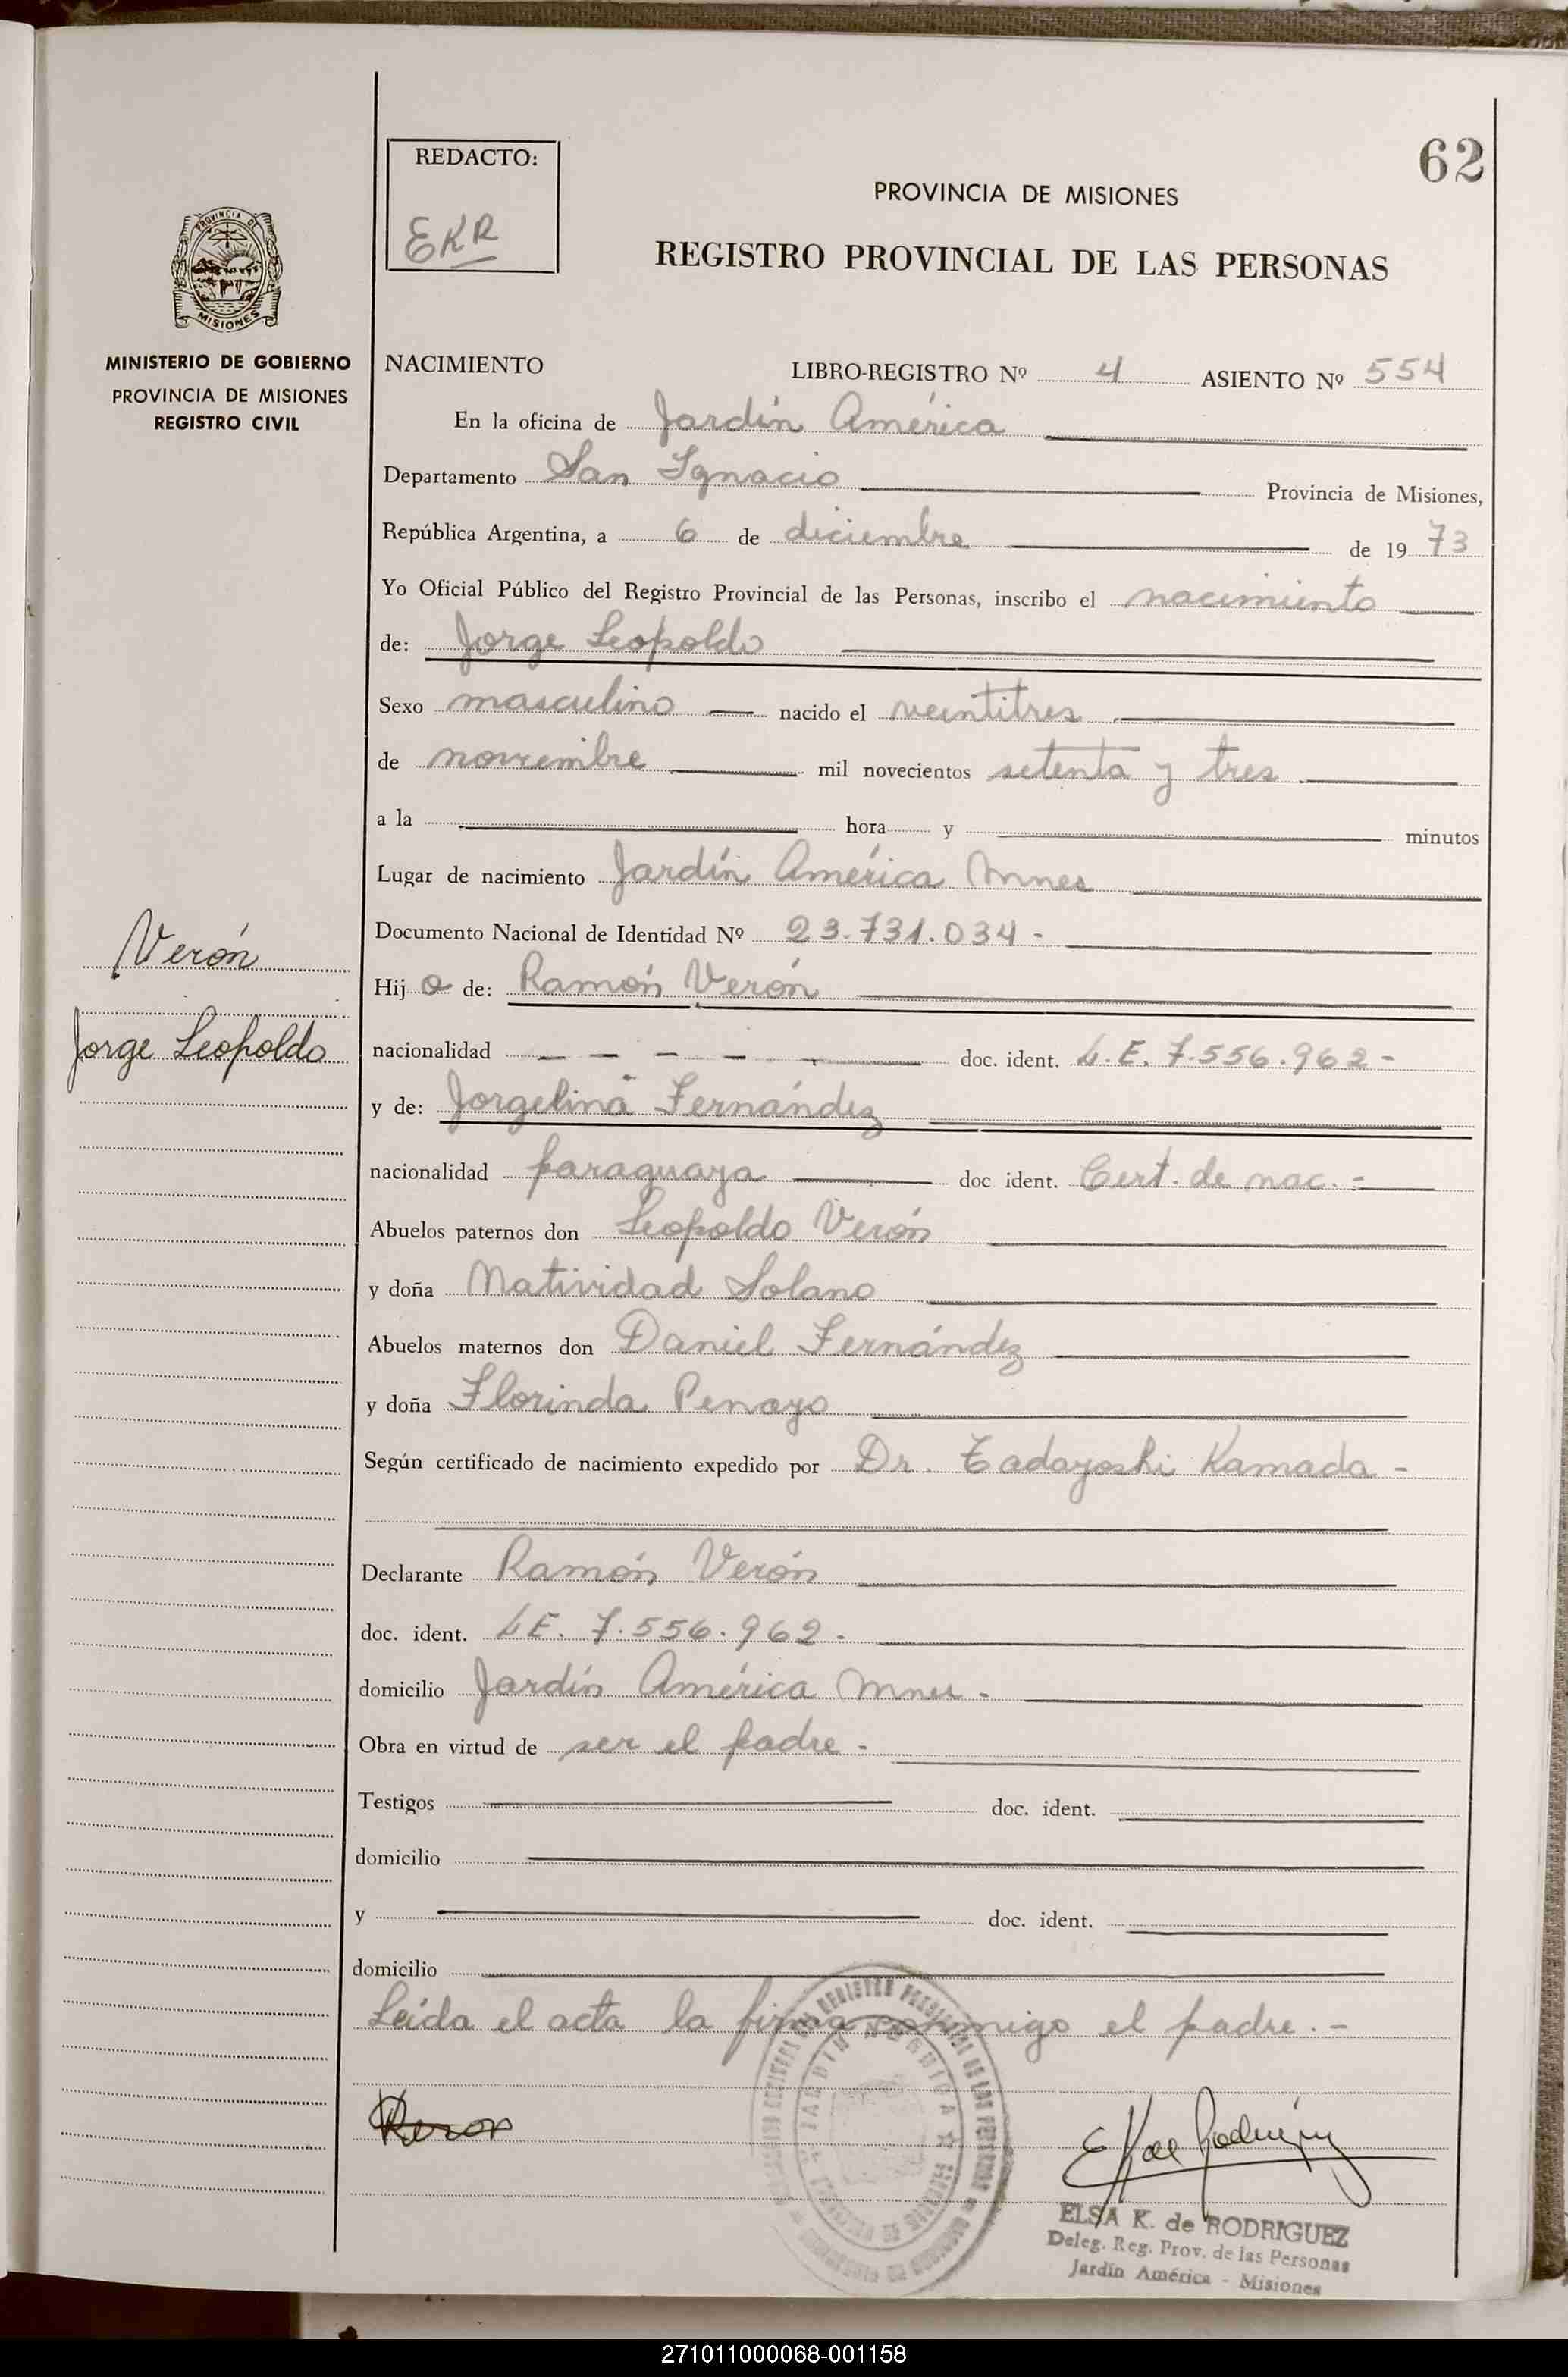 62
REDACTO:
EKR
PROVINCIA DE MISIONES
REGISTRO PROVINCIAL DE LAS PERSONAS
PROVINCIA DE
MISIONES
MINISTERIO DE GOBIERNO
PROVINCIA DE MISIONES
REGISTRO CIVIL
Verón
Jorge Leopoldo
NACIMIENTO LIBRO-REGISTRO Nº 4 ASIENTO Nº 554
En la oficina de Jardín América
Departamento San Ignacio Provincia de Misiones,
República Argentina, a 6 de diciembre de 1973
Yo Oficial Público del Registro Provincial de las Personas, inscribo el nacimiento
de: Jorge Leopoldo
Sexo masculino nacido el veintitres
de noviembre mil novecientos setenta y tres
a la hora y minutos
Lugar de nacimiento Jardín América Mnes
Documento Nacional de Identidad Nº 23.731.034-
Hijo de: Ramón Verón
nacionalidad - - - - doc. ident. L.E. 7.556.962-
y de: Jorgelina Fernández
nacionalidad paraguaya doc ident. Cert. de nac.-
Abuelos paternos don Leopoldo Verón
y doña Natividad Solano
Abuelos maternos don Daniel Fernández
y doña Florinda Penayo
Según certificado de nacimiento expedido por Dr. Tadayoshi Kamada -
Declarante Ramón Verón
doc. ident. LE. 7.556.962.
domicilio Jardín América Mnes-
Obra en virtud de ser el padre-
Testigos doc. ident.
domicilio
y doc. ident.
domicilio
Leída el acta la firma conmigo el padre.-
ELSA K. de RODRIGUEZ
Deleg. Reg. Prov. de las Personas
Jardín América - Misiones
271011000068-001158